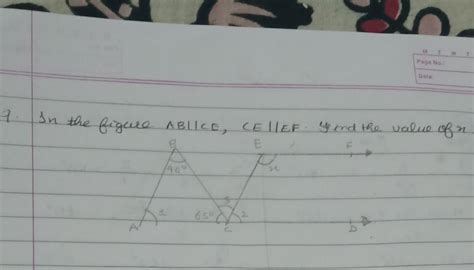 M T W T
Page No.:
Date:
9. In the figure AB||CE, CE||EF. Find the value of x
B E F
40° x
3
1 65° 2
A C D